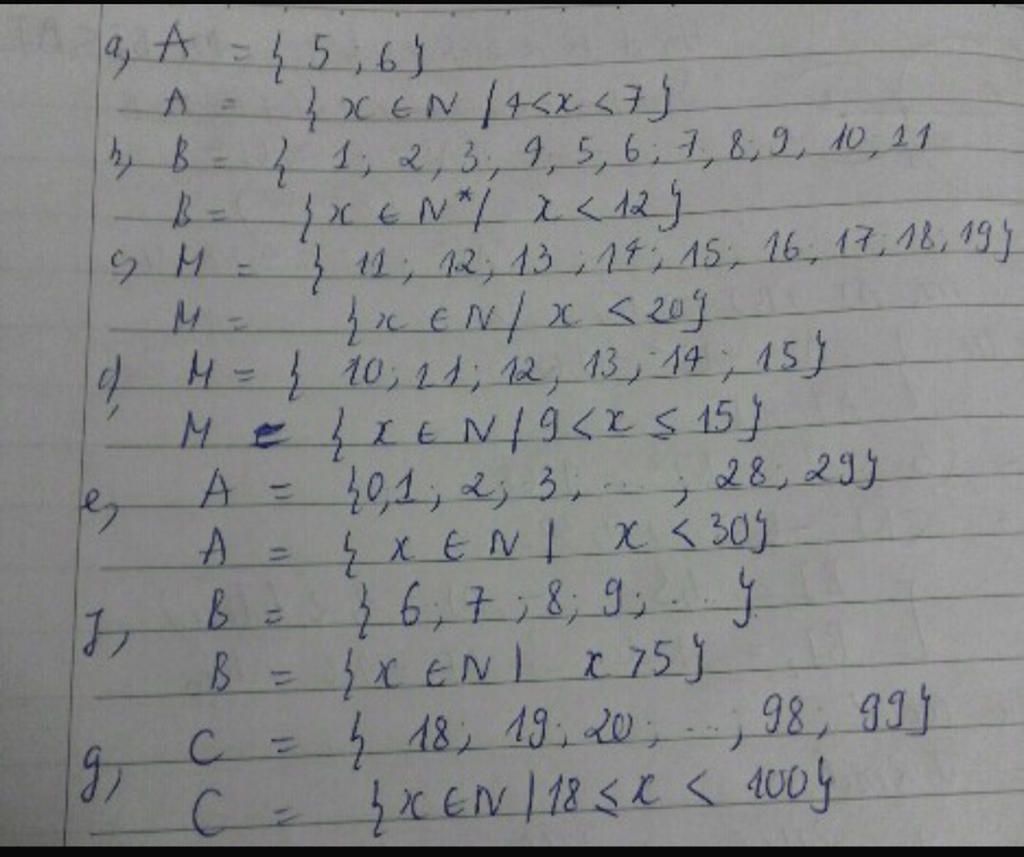 a, A = { 5 ; 6 }
A = { x ∈ N / 4 < x < 7 }
b, B = { 1 ; 2 , 3 ; 4 , 5 , 6 ; 7 , 8 , 9 , 10 , 11
B = { x ∈ N* / x < 12 }
c, M = { 11 ; 12 ; 13 ; 14 ; 15 ; 16 ; 17 ; 18 , 19 }
M = { x ∈ N / x < 20 }
d, M = { 10 ; 11 ; 12 , 13 ; 14 ; 15 }
M = { x ∈ N / 9 < x ≤ 15 }
e, A = { 0,1 ; 2 ; 3 ; ... ; 28 ; 29 }
A = { x ∈ N | x < 30 }
f, B = { 6 ; 7 ; 8 ; 9 ; ... }
B = { x ∈ N | x > 5 }
g, C = { 18 ; 19 ; 20 ; ... , 98 ; 99 }
C = { x ∈ N / 18 ≤ x < 100 }